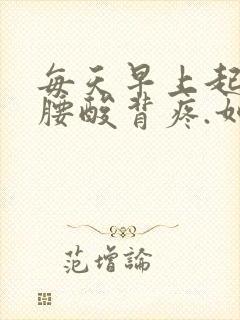 每天早上起
腰酸背疼.如
范增論